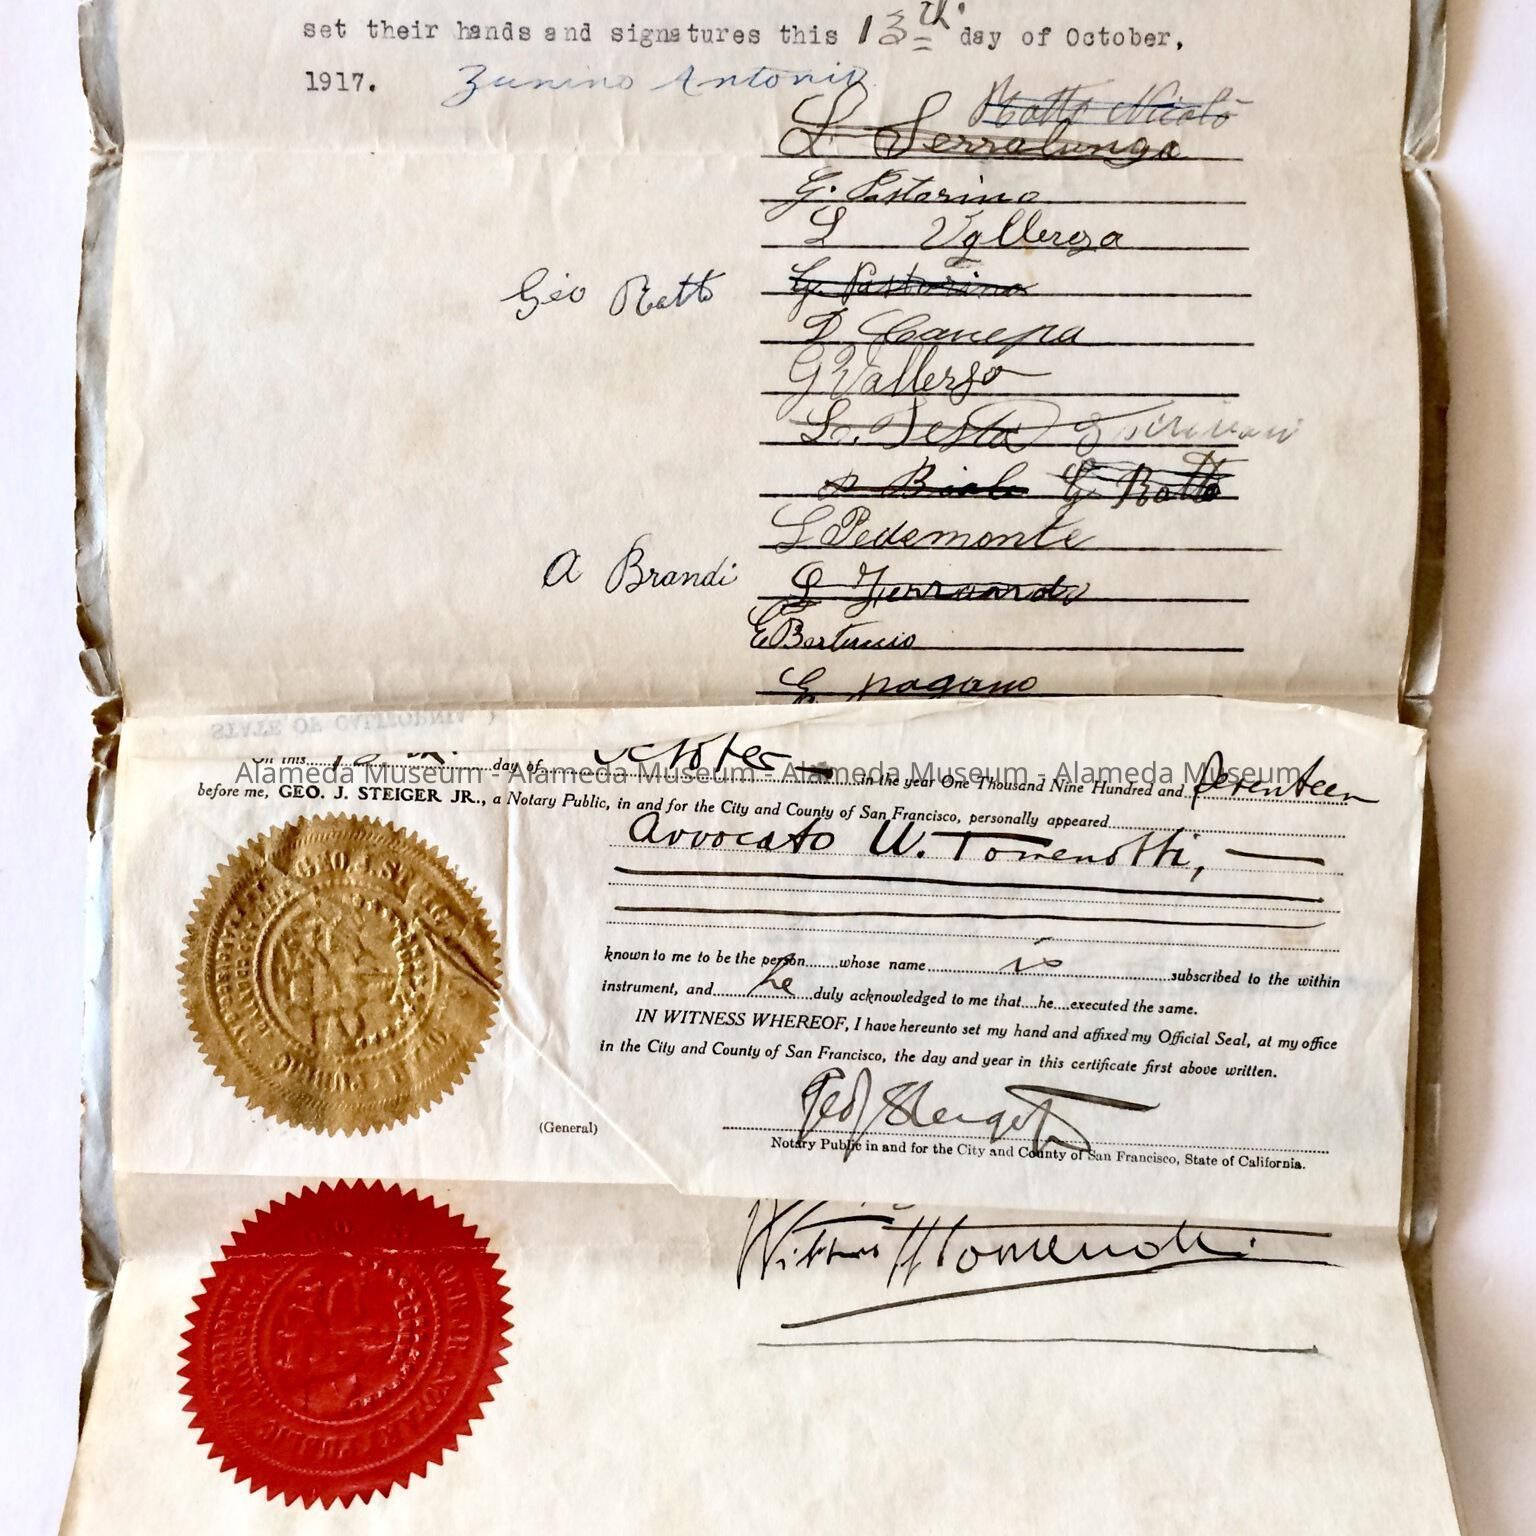 set their hands and signatures this 13th. day of October,
1917. Zunino Antonio
Ratto Nicolò
L. Serralunga
G. Pastorino
L Vallerga
Geo Ratto G. Pastorino
D Canepa
G Vallerga
L. Testa
Biale G. Ratto
L Pedemonte
A Brandi
E Bertuccio
G pagano
STATE OF CALIFORNIA )
On this day of October in the year One Thousand Nine Hundred and Seventeen
Alameda Museum - Alameda Museum - Alameda Museum - Alameda Museum
before me, GEO. J. STEIGER JR., a Notary Public, in and for the City and County of San Francisco, personally appeared
Avvocato W. Tomenotti,
known to me to be the person whose name is subscribed to the within
instrument, and he duly acknowledged to me that he executed the same.
IN WITNESS WHEREOF, I have hereunto set my hand and affixed my Official Seal, at my office
in the City and County of San Francisco, the day and year in this certificate first above written.
Geo J Steiger Jr
(General)
Notary Public in and for the City and County of San Francisco, State of California.